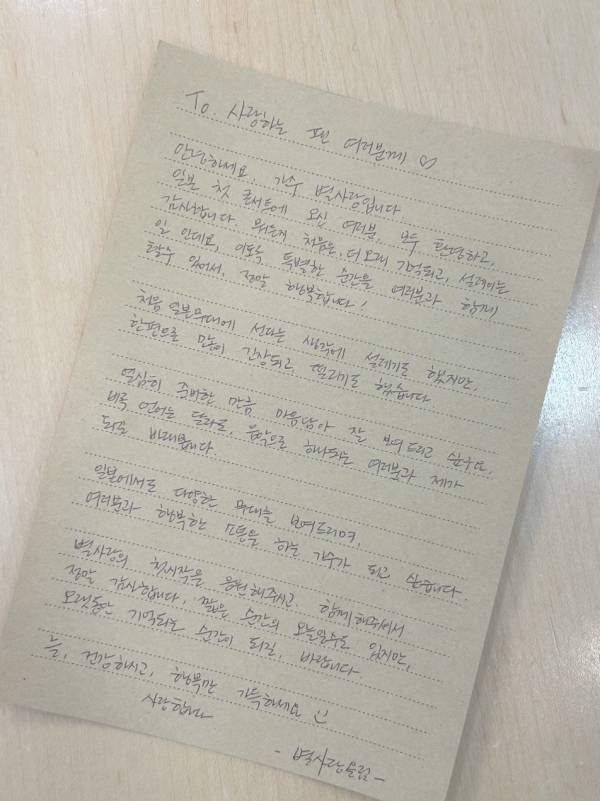 To. 사랑하는 팬 여러분께 ♡
안녕하세요. 가수 별사랑입니다
일본 첫 콘서트에 오신 여러분, 모두 환영하고,
감사합니다. 뭐든게 처음은, 더 오래 기억되고, 설레이는
일 인데요, 이토록 특별한 순간을 여러분과 함께
할수 있어서, 정말 행복합니다!
처음 일본무대에 선다는 생각에 설레기도 했지만,
한편으로 많이 긴장되고 떨리기도 했습니다
열심히 준비한 만큼 마음담아 잘 보여 드리고 싶구요,
비록 언어는 달라도, 음악으로 하나되는 여러분과 제가
되길 바래봅니다
일본에서도 다양한 무대를 보여드리며,
여러분과 행복한 소통을 하는 가수가 되고 싶습니다
별사랑의 첫시작을 응원해주시고 함께해주셔서
정말 감사합니다, 짧은 순간의 오늘일수도 있지만,
오랫동안 기억되는 순간이 되길, 바랍니다
늘, 건강하시고, 행복만 가득하세요 :)
사랑합니다
- 별사랑드림 -